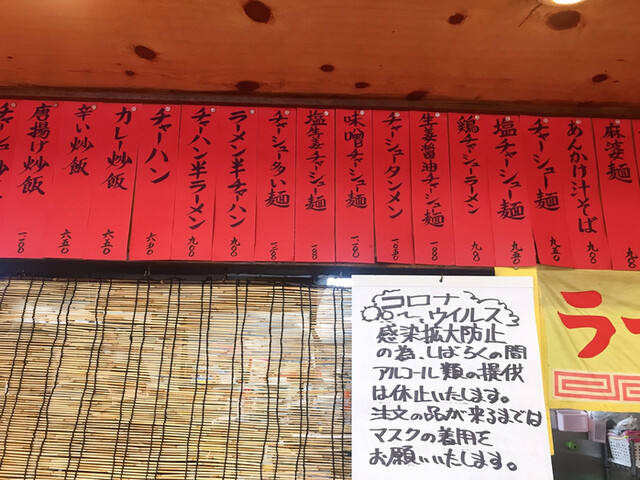 麻婆麺
あんかけ汁そば 九〇〇
チャーシュー麺 九五〇
塩チャーシュー麺 九五〇
鶏チャーシューラーメン
生姜醤油チャーシュー麺
チャーシュータンメン 一〇五〇
味噌チャーシュー麺
塩生姜チャーシュー麺
チャーシュー多い麺
ラーメン半チャーハン 九〇〇
チャーハン半ラーメン 九〇〇
チャーハン 六五〇
カレー炒飯 六五〇
辛い炒飯 六五〇
唐揚げ炒飯
コロナ
ウイルス
感染拡大防止
の為、しばらくの間
アルコール類の提供
は休止いたします。
注文の品が来るまでは
マスクの着用を
お願いいたします。